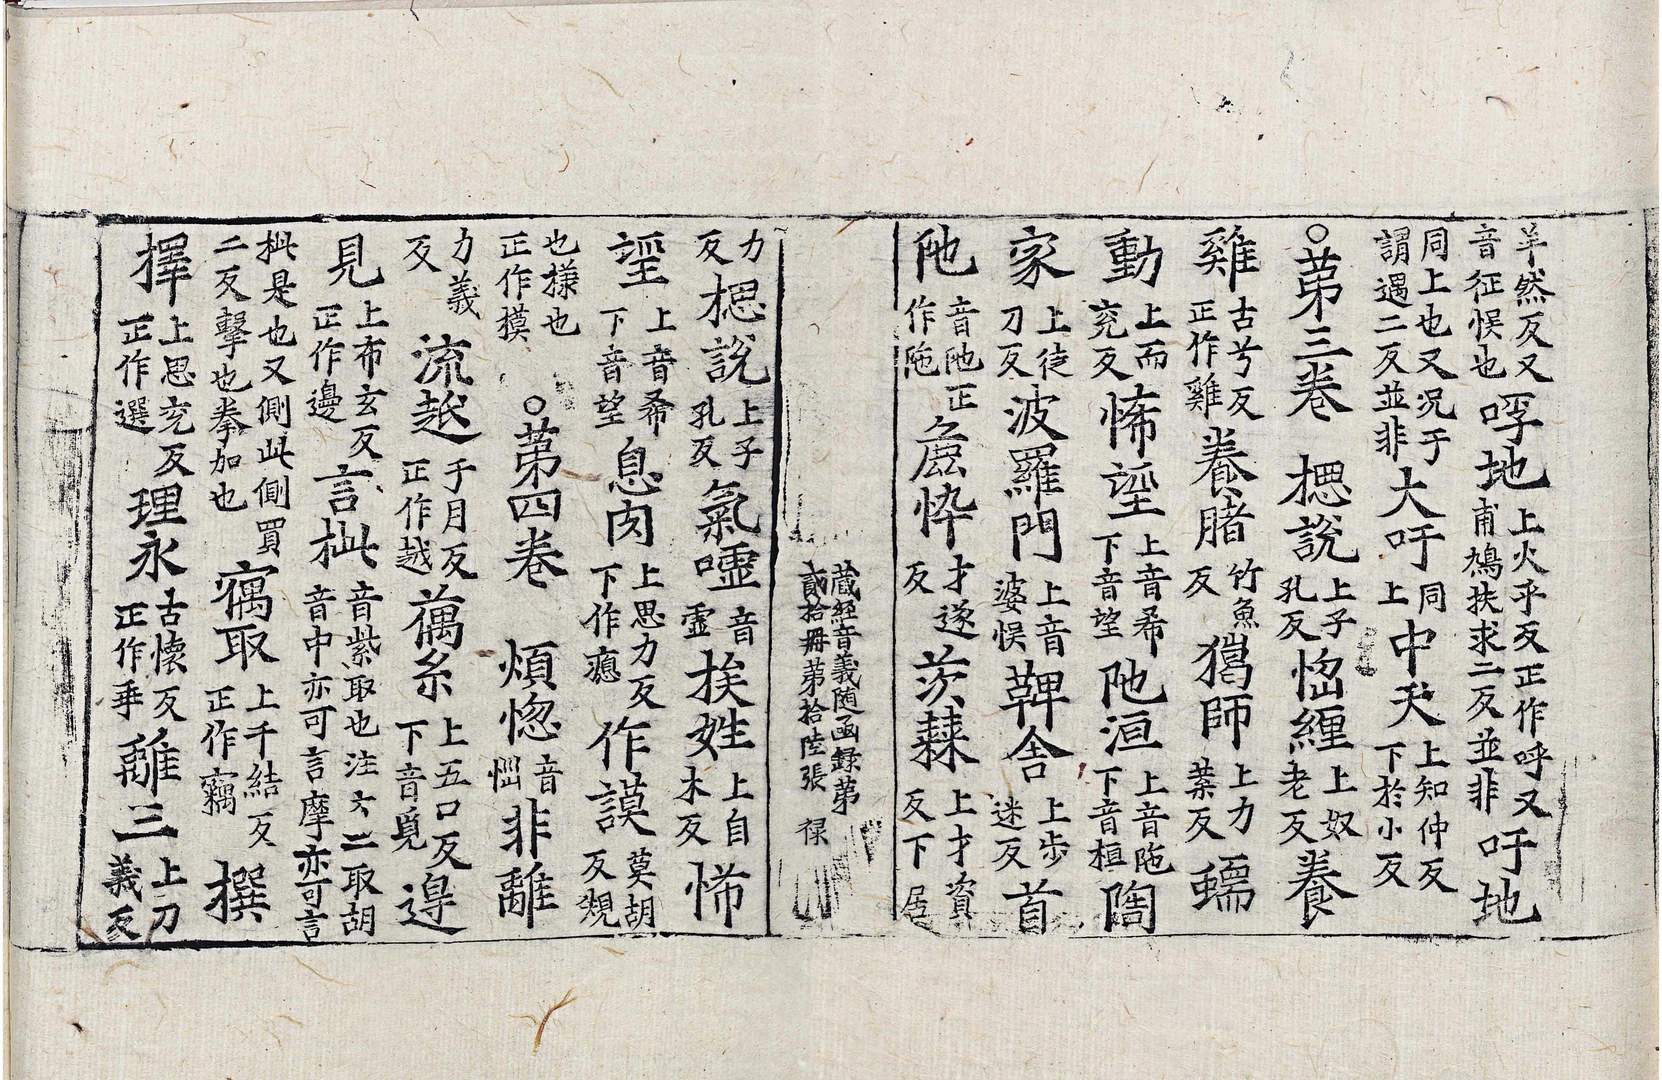 羊然反又音征悮也呼地上火乎反正作呼又甫鳩扶求二反並非吁地
同上也又况于謂遇二反並非大吁同上中夭上知仲反下於小反
○第三卷　摠說上子孔反惱纏上奴老反養
雞古兮反正作雞養賭竹魚反獦師上力葉反蠕
動上而兖反悕𧧯上音希下音望陁洹上音陁下音桓闍
家上徒刀反波羅門上音婆悮鞞舍上步迷反首
陁音陁正作陁危忰才遂反茨蕀上才資反下居
藏經音義随函録第貳拾冊第拾陸張　禄
力反摠說上子孔反氣嘘音虛挨姓上自木反悕
𧧯上音希下音望息肉上思力反下作瘜作謨莫胡反規
也㨾也正作摸○第四卷　煩惚音惱非離
力義反流越于月反正作越藕糸上五口反下音覓邉
見上布玄反正作邊言枇音紫取也注六二取胡音中亦可言摩亦可言
枇是也又側此側買二反擊也拳加也竊取上千結反正作竊撰
擇上思兖反正作選理永古懐反正作乖離三上力義反